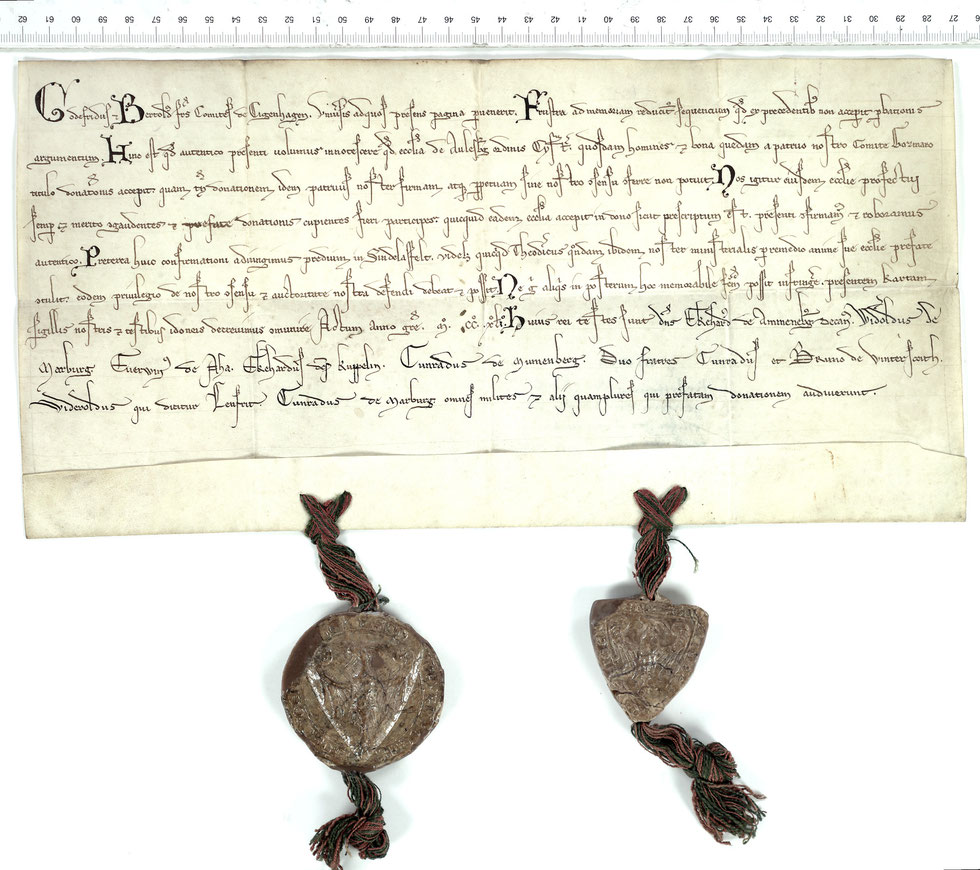 62 61 60 59 58 57 56 55 54 53 52 51 50 49 48 47 46 45 44 43 42 41 40 39 38 37 36 35 34 33 32 31 30 29 28 27 26
Godefridus ⁊ Bertolđ frs Comites de Cigenhagen. Vniusis ad quos presens pagina puenerit. Frustra ad memoriam reducitur sequencium qđ ex precedentibus non accepit pbationis
argumentum. Hinc est qđ autentico presenti volumus innotescere qđ ecclia de Aulesbg ordinis Cyst. quosdam homines ⁊ bona quedam a patruo nostro Comite Gozmaro
titulo donationis accepit. quam donationem idem patruus noster firmam atq; ppetuam sine nostro sensu facere non potuit. Nos igitur eiusdem ecclie profectui
semp ex merito ⁊gaudentes ⁊ prefate donationis cupientes fieri participes. quicquid eadem ecclia accepit in dono sicut prescriptum est. presenti ⁊firmam ⁊ roboramus
autentico. Preterea huic confirmationi adiungimus predium in Sindelasfelt. videlz quicqđ Theodericus qndam ibidem noster ministerialis pro remedio anime sue ecclie prefate
⁊tulit. eodem priuilegio de nostro ⁊sensu ⁊ auctoritate nostra defendi debeat ⁊ possit. Ne g aliqs in posterum hoc memorabile possit infringere. presentem kartam
sigillis nostris ⁊ testibus idoneis decreuimus ⁊munire. Actum Anno gre. m. cc. xl. Huius rei testes sunt dns Ekehard de Ammeneburg decan. Widoldus de
Marburg Guerwin de Aha. Ekehardus Ruppelin. Cunradus de Mumenberg. Duo fratres Cunradus et Bruno de Winterscoith.
Wideroldus qui dicitur Lenfrit. Cunradus de Marburg omnes milites ⁊ alij quamplures qui prefatam donationem audiuerunt.